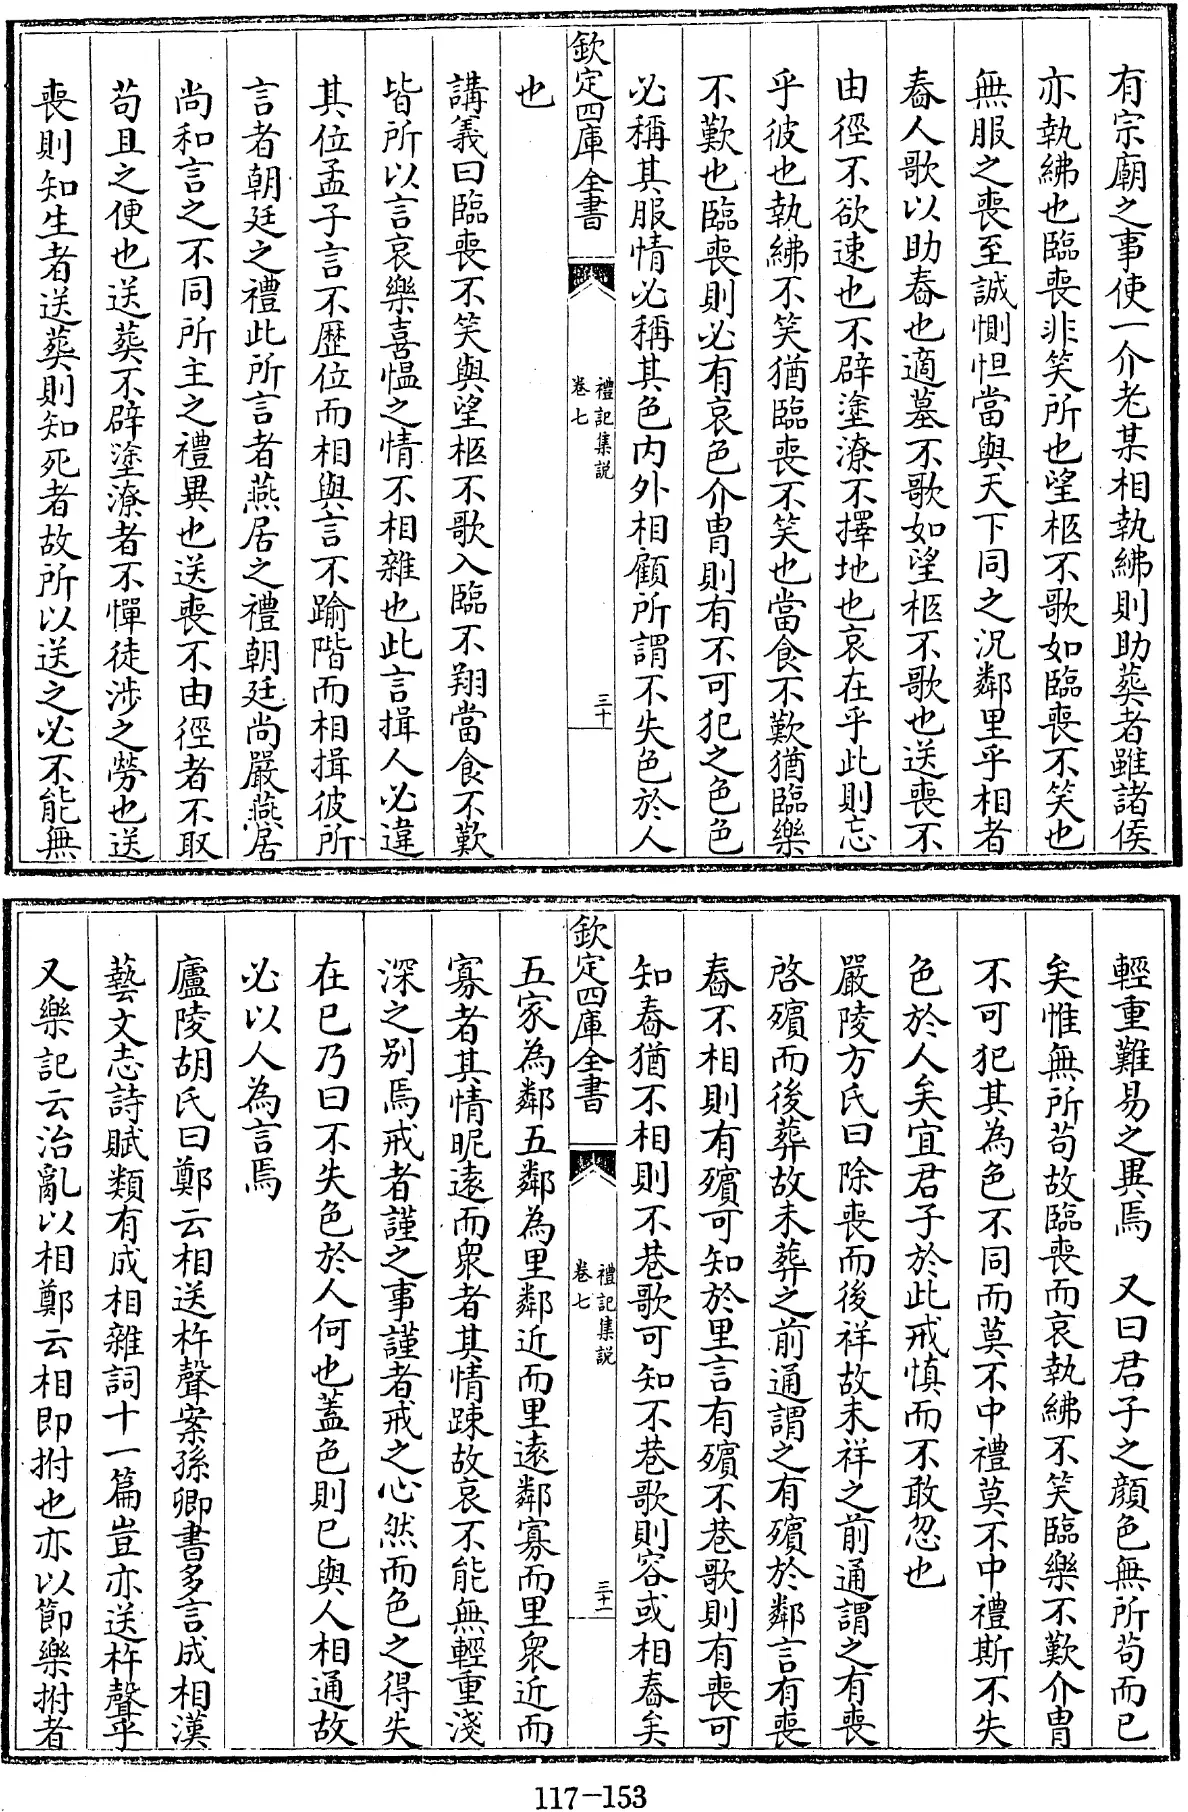 有宗廟之事使一介老某相執紼則助葬者雖諸侯
亦執紼也臨喪非笑所也望柩不歌如臨喪不笑也
無服之喪至誠惻怛當與天下同之況鄰里乎相者
舂人歌以助舂也適墓不歌如望柩不歌也送喪不
由徑不欲速也不辟塗潦不擇地也哀在乎此則忘
乎彼也執紼不笑猶臨喪不笑也當食不歎猶臨樂
不歎也臨喪則必有哀色介胄則有不可犯之色色
必稱其服情必稱其色内外相顧所謂不失色於人
欽定四庫全書
禮記集説
卷七
三十
也
講義曰臨喪不笑與望柩不歌入臨不翔當食不歎
皆所以言哀樂喜愠之情不相雜也此言揖人必違
其位孟子言不歴位而相與言不踰階而相揖彼所
言者朝廷之禮此所言者燕居之禮朝廷尚嚴燕居
尚和言之不同所主之禮異也送喪不由徑者不取
苟且之便也送葬不辟塗潦者不憚徒涉之勞也送
喪則知生者送葬則知死者故所以送之必不能無
輕重難易之異焉　又曰君子之顔色無所苟而已
矣惟無所苟故臨喪而哀執紼不笑臨樂不歎介胄
不可犯其為色不同而莫不中禮莫不中禮斯不失
色於人矣宜君子於此戒慎而不敢忽也
嚴陵方氏曰除喪而後祥故未祥之前通謂之有喪
啓殯而後葬故未葬之前通謂之有殯於鄰言有喪
舂不相則有殯可知於里言有殯不巷歌則有喪可
知舂猶不相則不巷歌可知不巷歌則容或相舂矣
欽定四庫全書
禮記集説
卷七
三十一
五家為鄰五鄰為里鄰近而里遠鄰寡而里衆近而
寡者其情昵遠而衆者其情踈故哀不能無輕重淺
深之别焉戒者謹之事謹者戒之心然而色之得失
在已乃曰不失色於人何也蓋色則已與人相通故
必以人為言焉
廬陵胡氏曰鄭云相送杵聲案孫卿書多言成相漢
藝文志詩賦類有成相雜詞十一篇豈亦送杵聲乎
又樂記云治亂以相鄭云相即拊也亦以節樂拊者
117-153